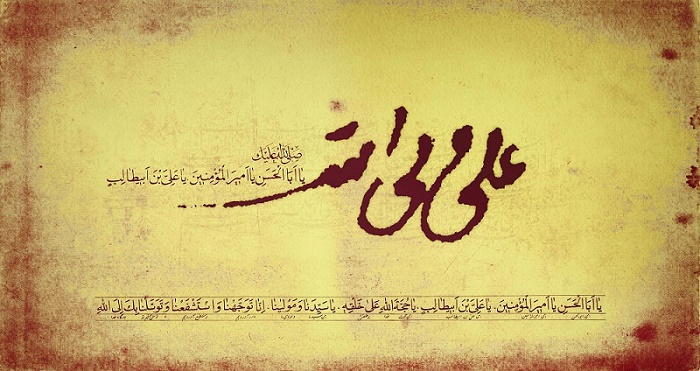 علی ولی الله
صَلَّى اللهُ عَلَيْكَ
يا اَبَا الْحَسَنِ يا اَميرَ الْمُؤْمِنينَ يا عَلِيَّ بْنَ اَبيطالِبٍ
يا اَبَا الْحَسَنِ يا اَميرَ الْمُؤْمِنينَ. يا عَلِيَّ بْنَ اَبيطالِبٍ. يا حُجَّةَ اللهِ عَلى خَلْقِهِ. يا سَيِّدَنا وَ مَوْلينا. اِنّا تَوَجَّهْنا وَ اسْتَشْفَعْنا وَ تَوَسَّلْنا بِكَ اِلَى اللهِ